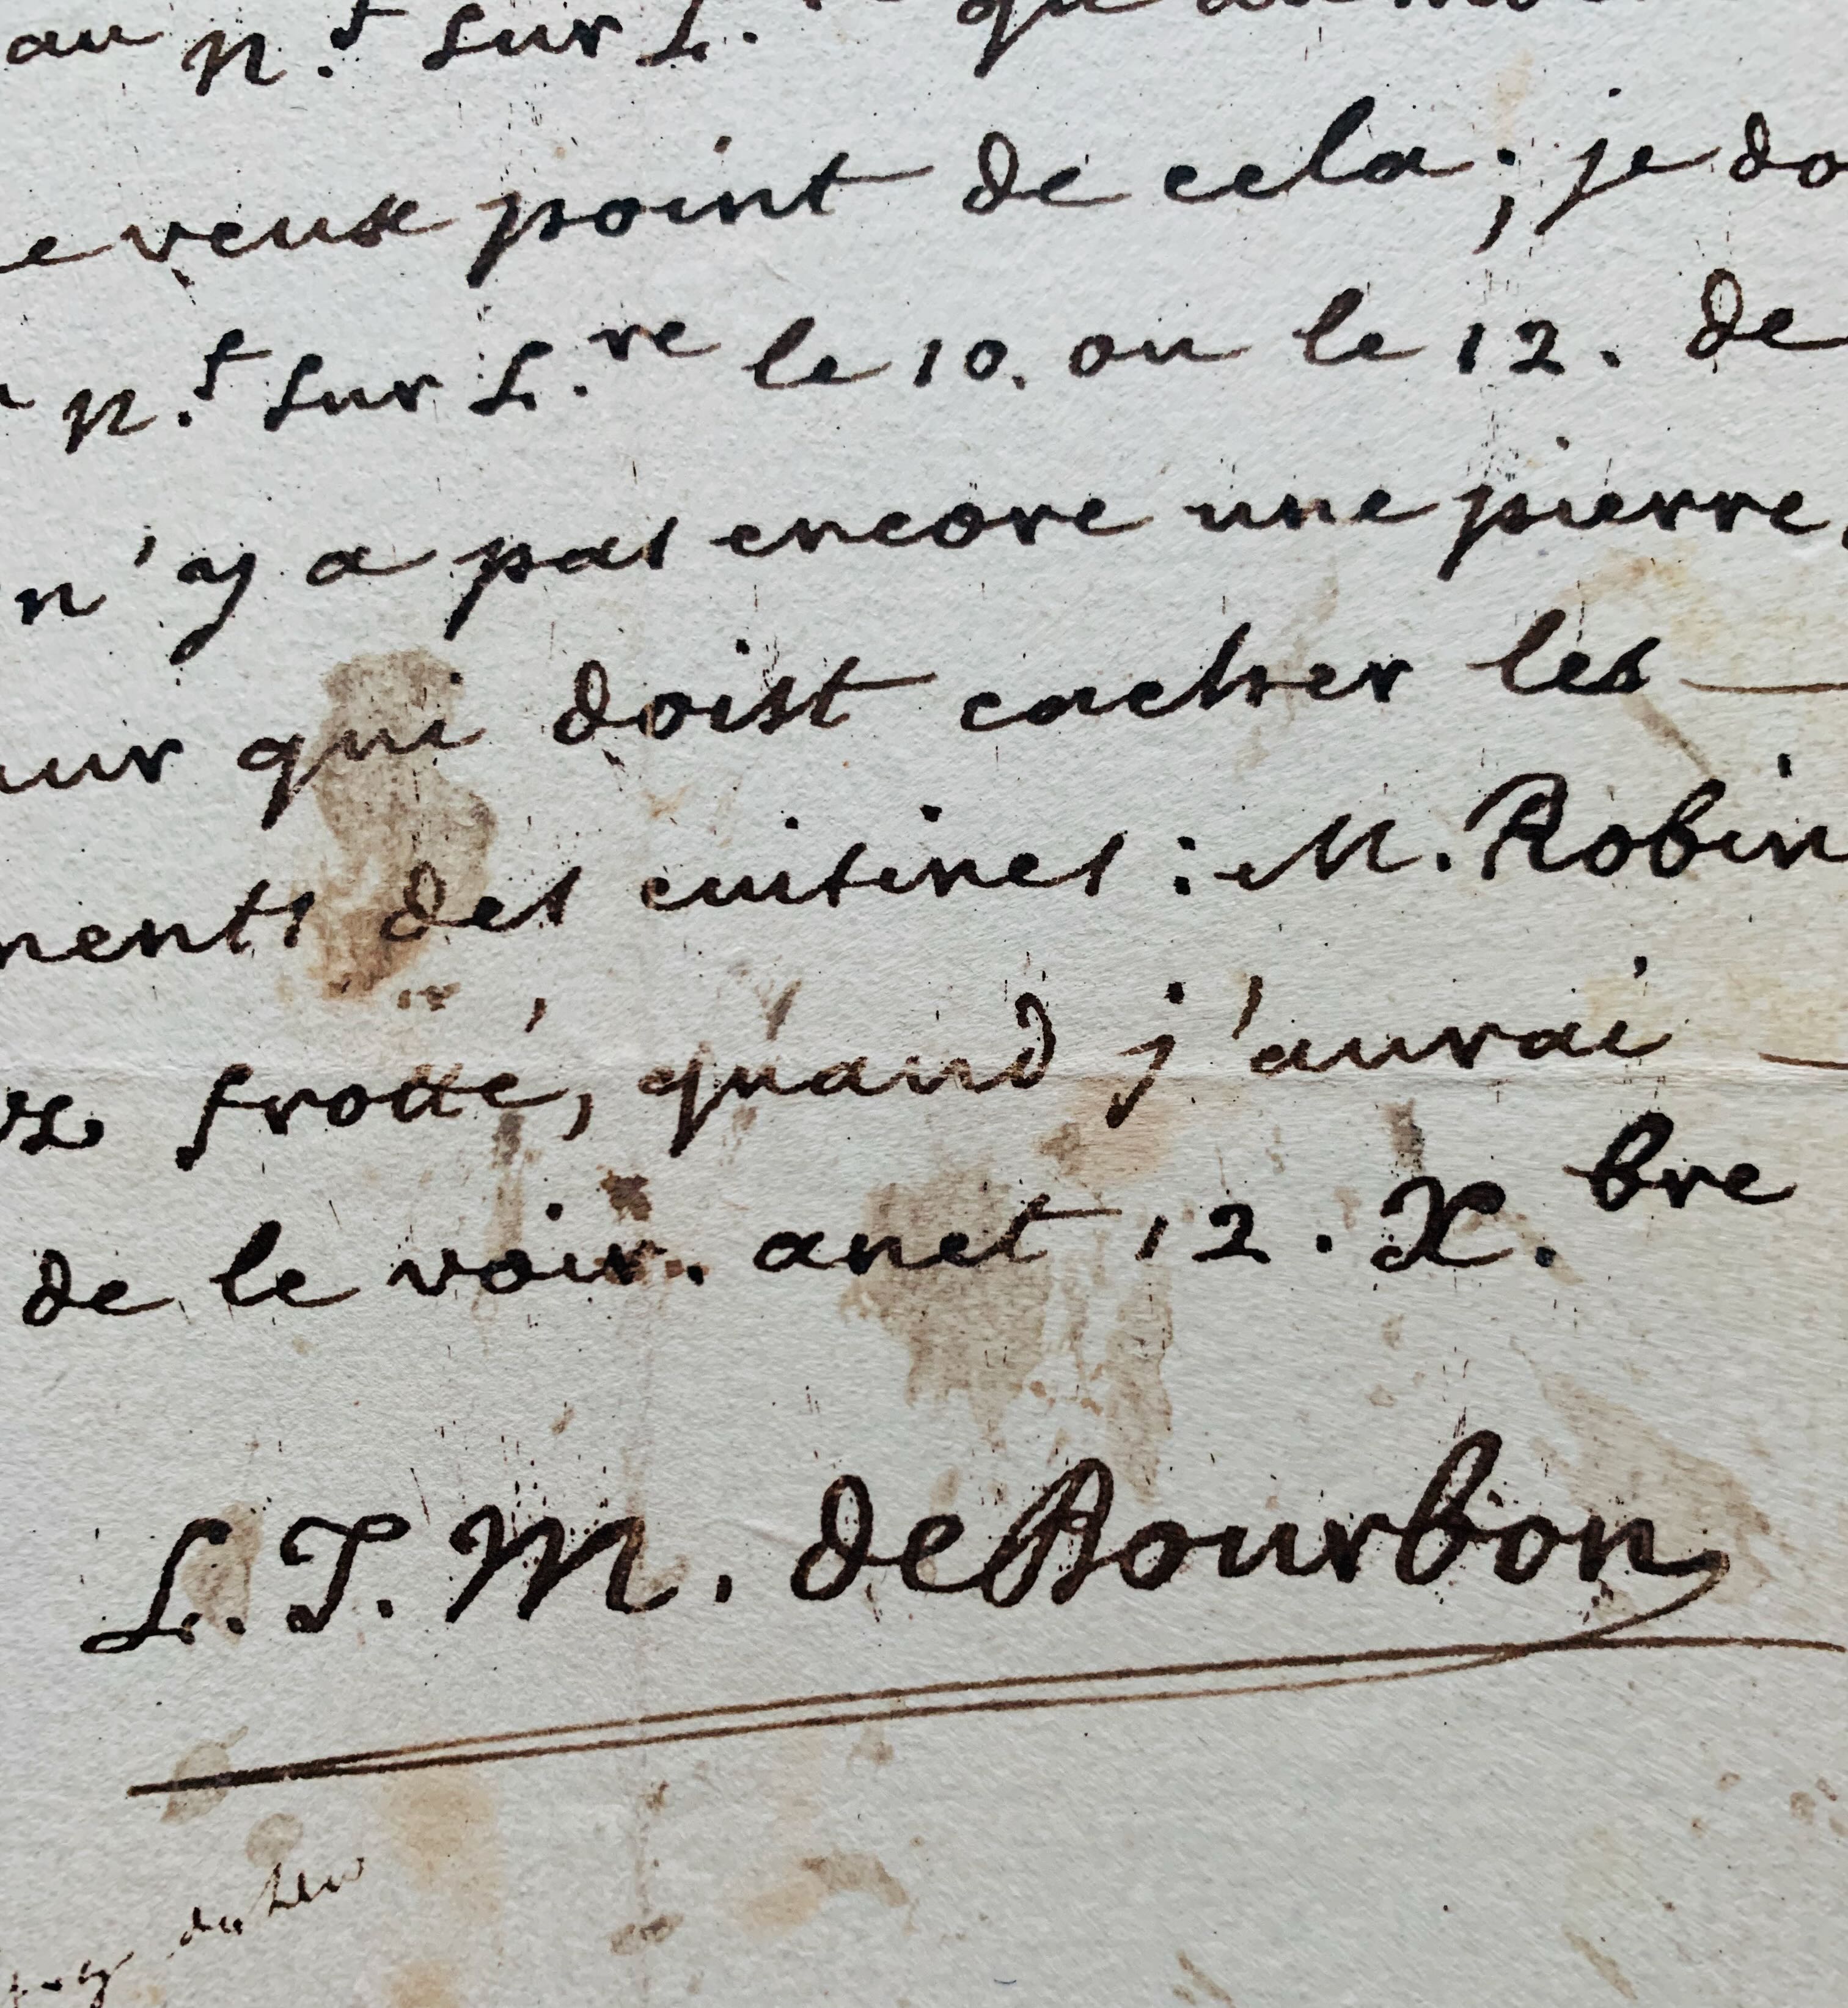 au N.t sur L.
e veux point de cela; je do
N.t sur L.re le 10. ou le 12. de
n'y a pas encore une pierre
ur qui doist cacher les
ments des cuisines: M. Robin
frotté, quand j'aurai
de le voir. anet 12. X.bre
L. J. M. de Bourbon